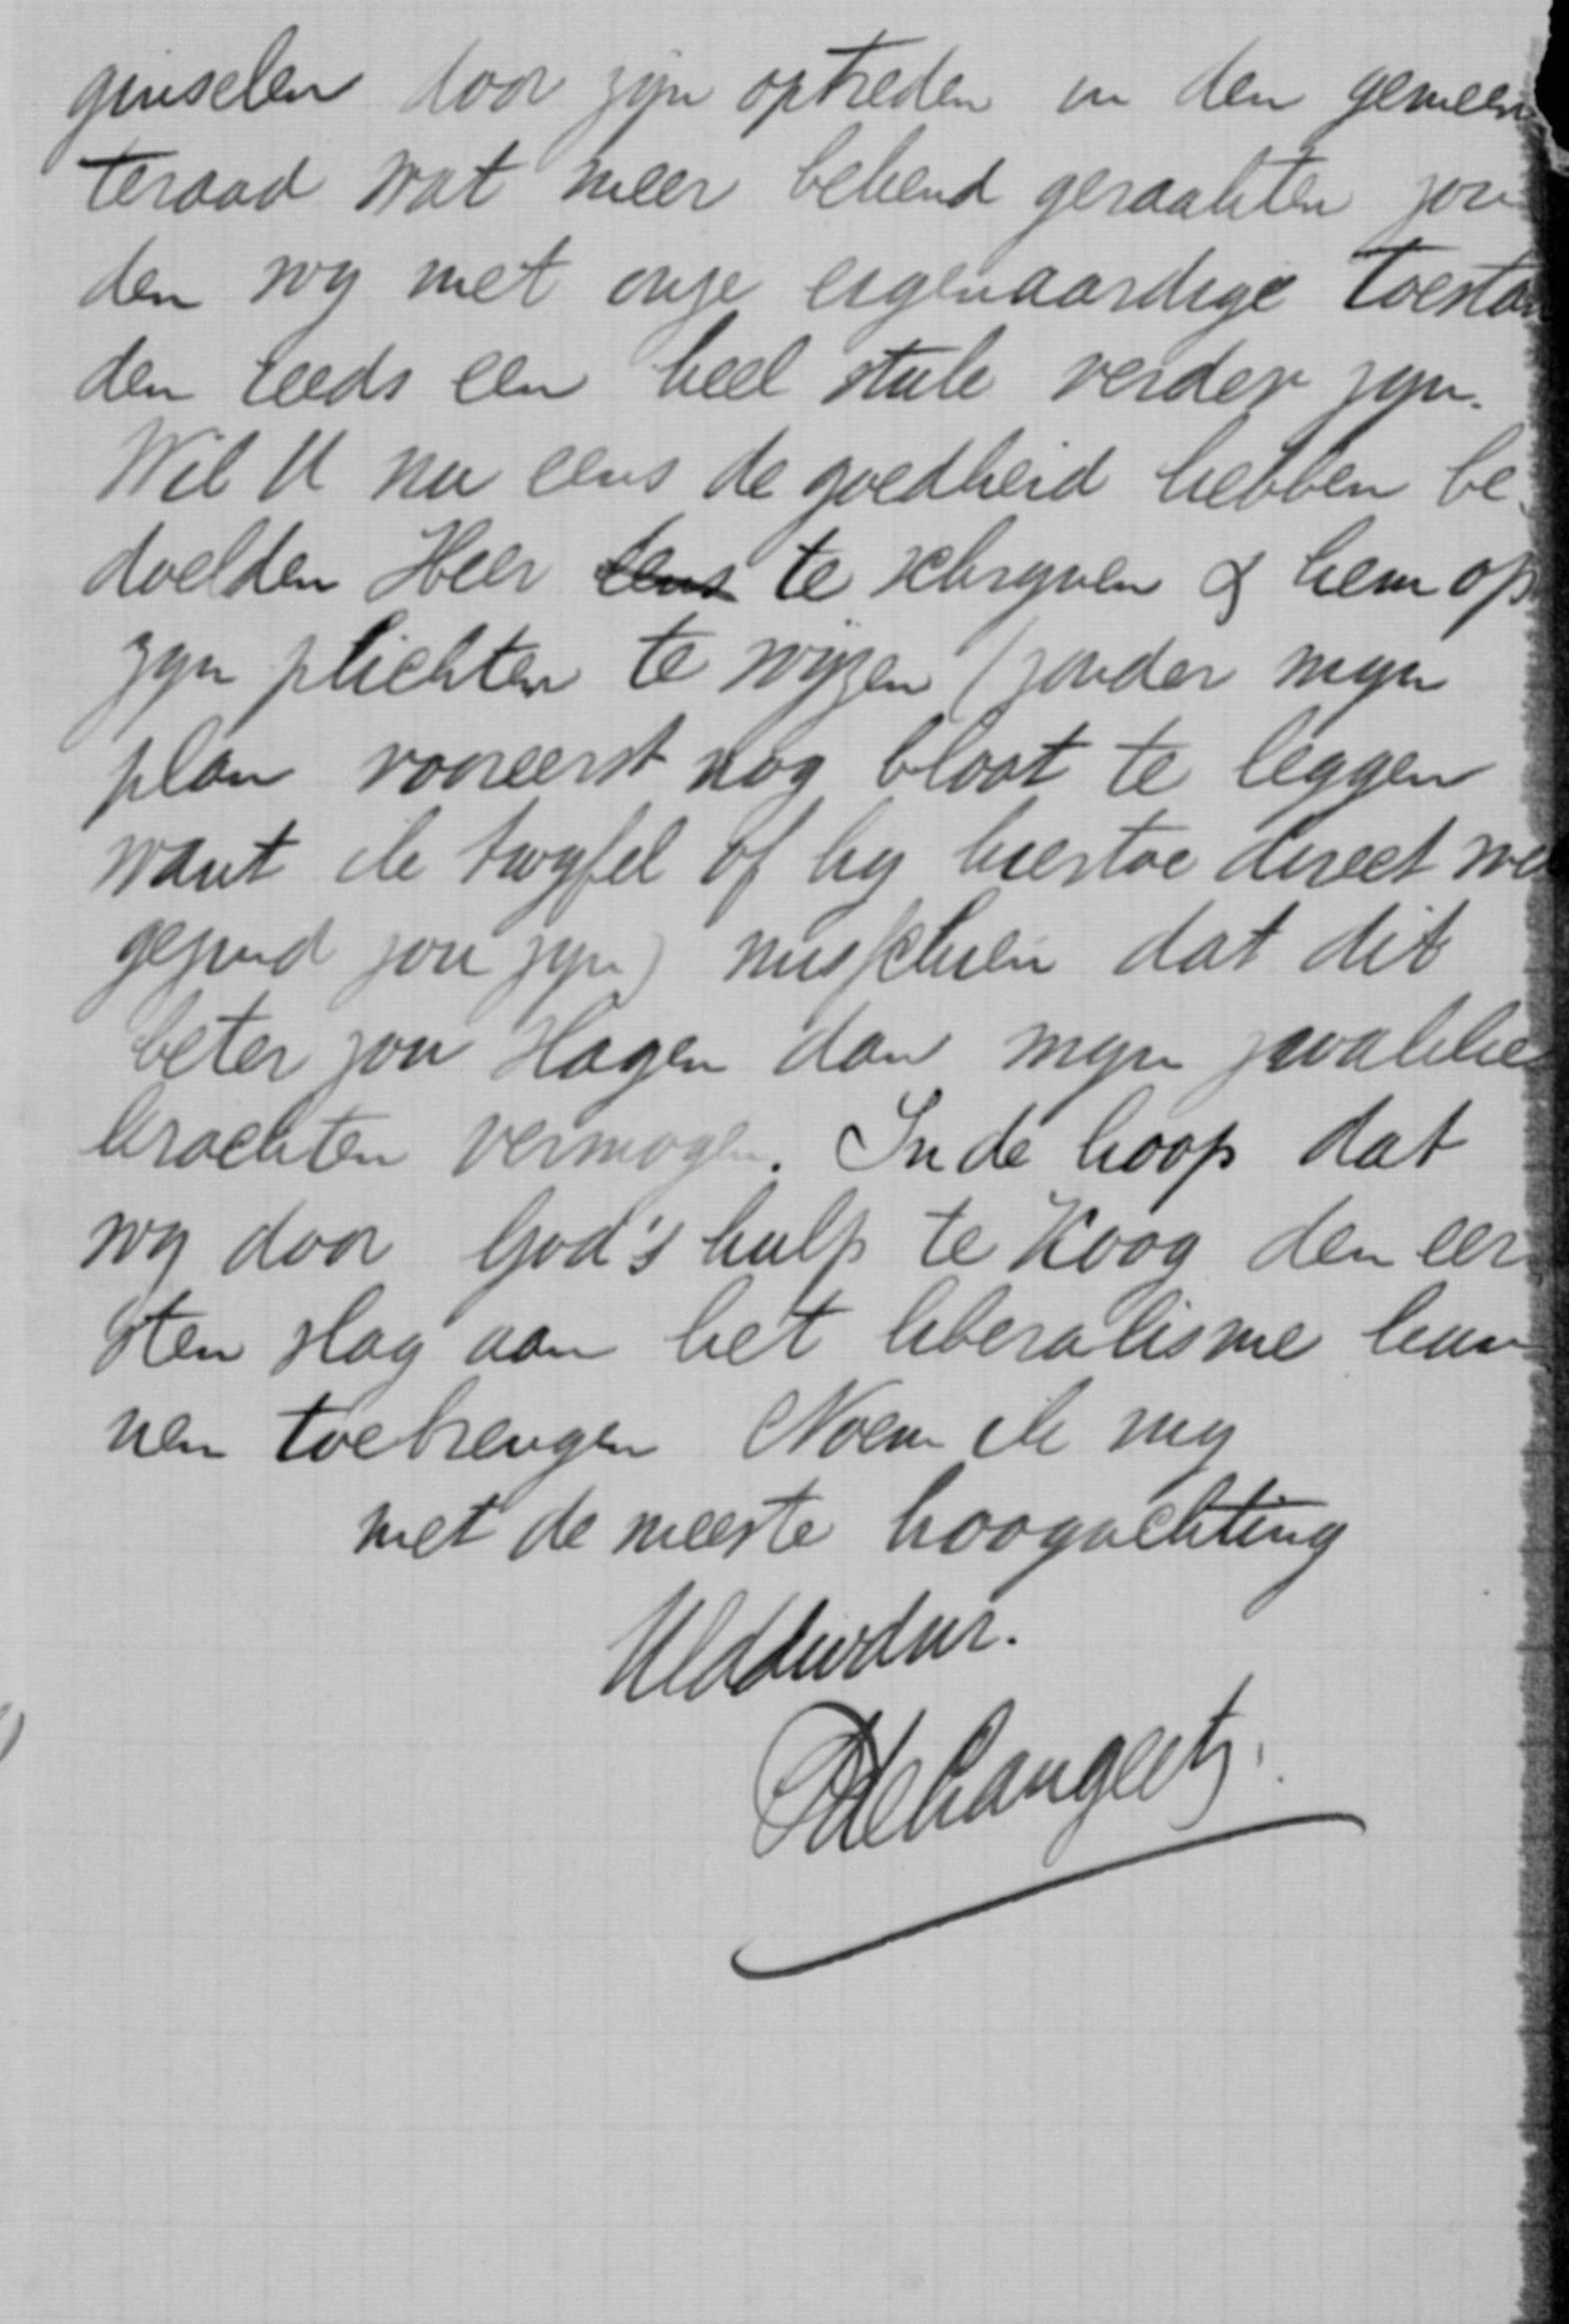 ginselen door zijn optreden in den gemeen
teraad wat meer bekend geraakten zou
den wij met onze eigenaardige toestan
den reeds een heel stuk verder zijn.
Wil U nu eens de goedheid hebben be
doelden Heer eens te schrijven & hem op
zijn plichten te wijzen (zonder mijn
plan vooreerst nog bloot te leggen
want ik twijfel of hij hiertoe direct wel
gezind zou zijn) misschien dat dit
beter zou slagen dan mijn zwakke
krachten vermogen. In de hoop dat
wij door God's hulp te Koog den eer
sten slag aan het liberalisme kun
nen toebrengen Noem ik mij
met de meeste hoogachting
UEddwdnr.